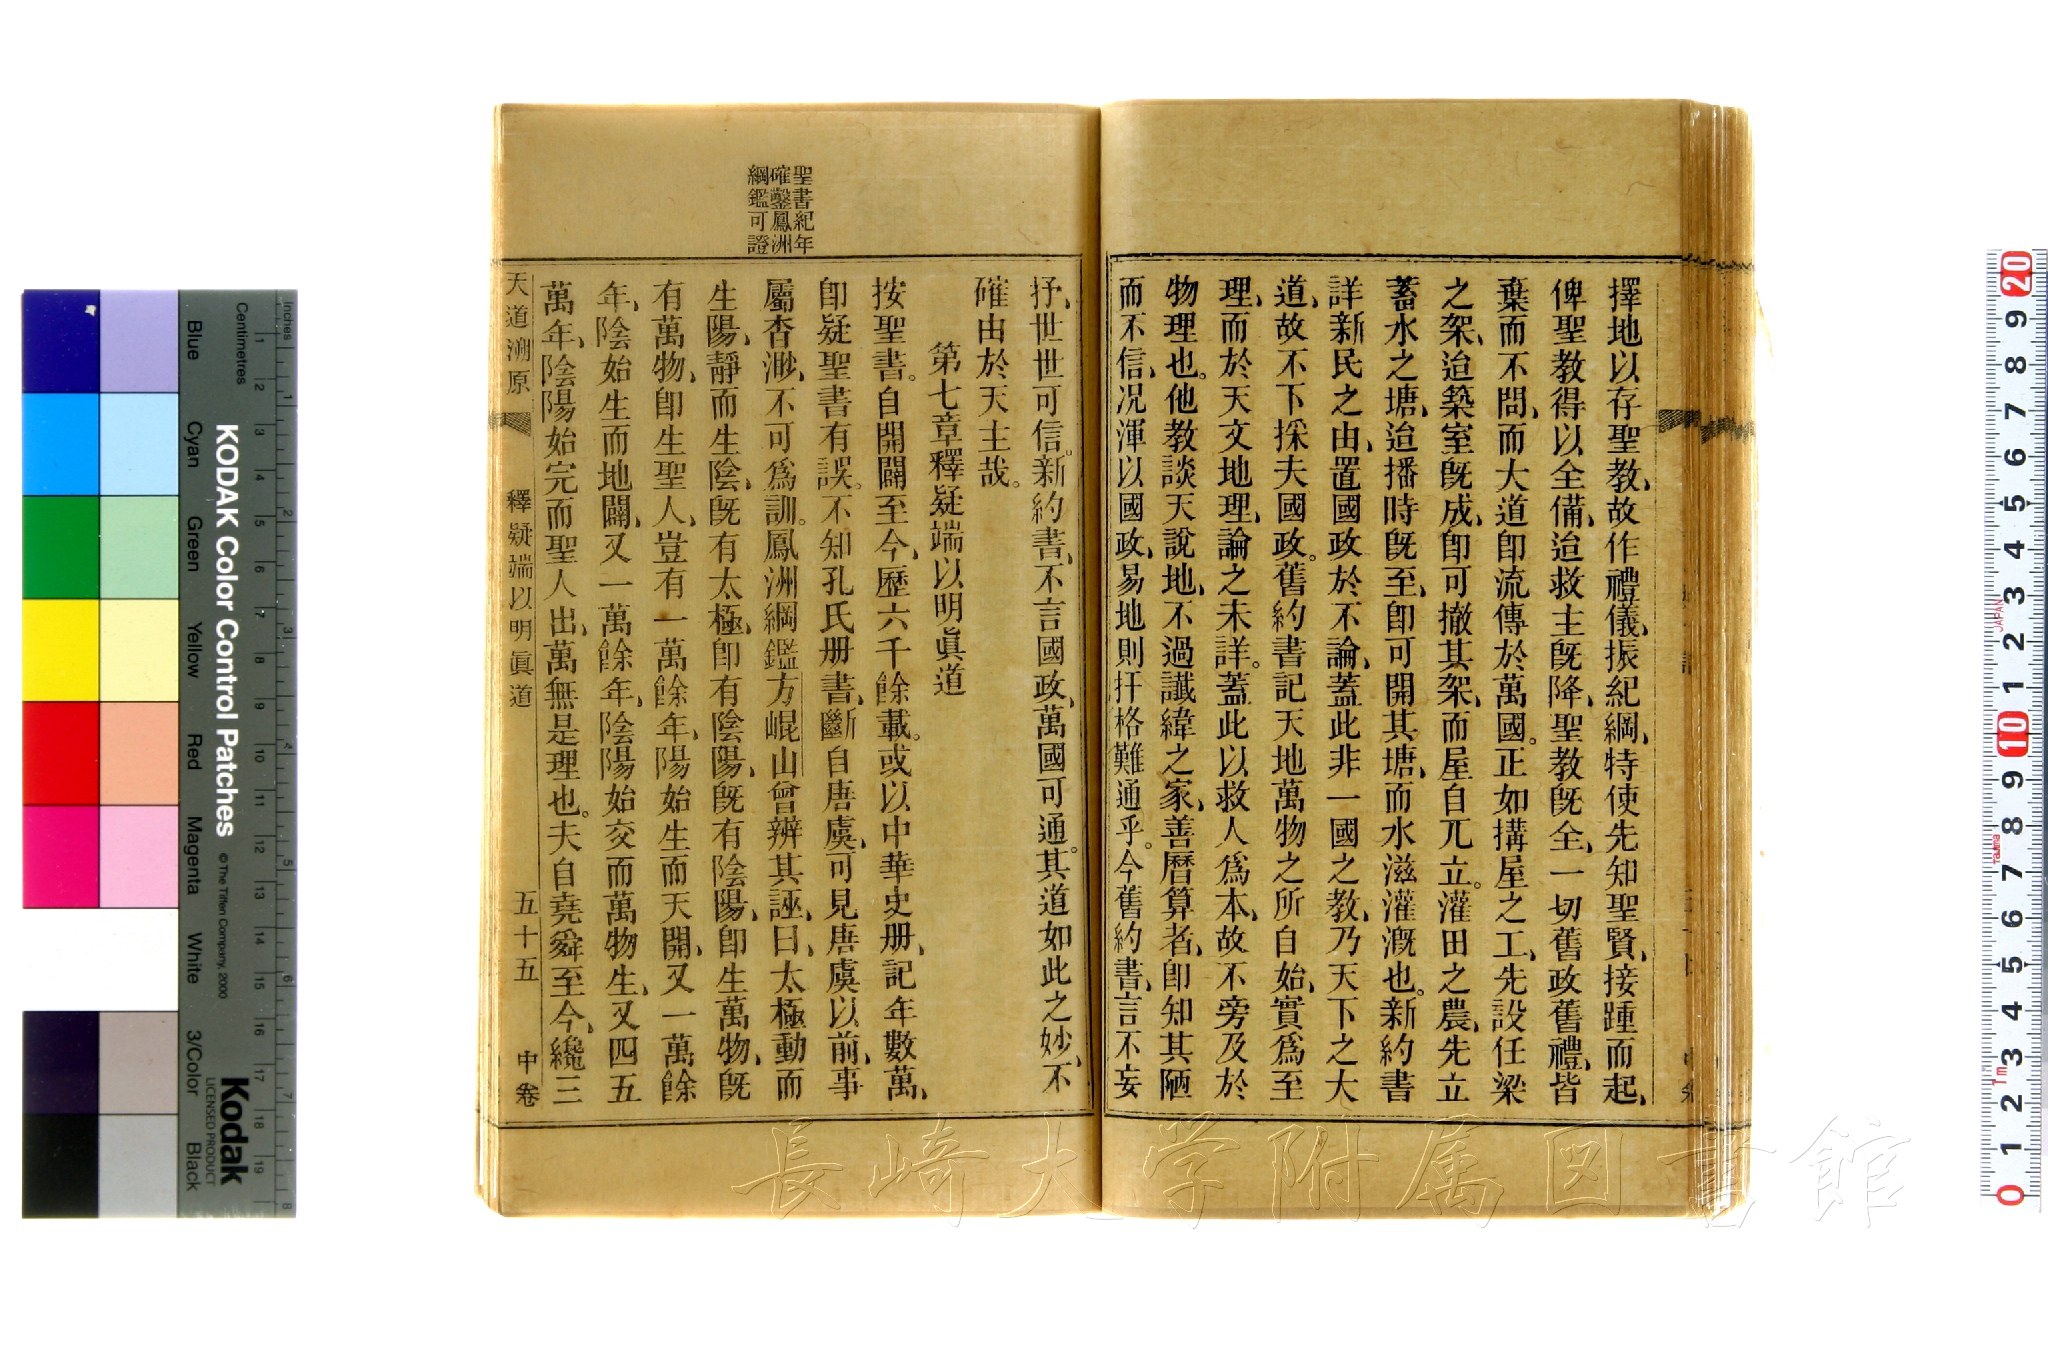 擇地以存聖教、故作禮儀、振紀綱、特使先知聖賢、接踵而起、
俾聖教得以全備、迨救主旣降、聖教旣全、一切舊政舊禮、皆
棄而不問、而大道卽流傳於萬國。正如搆屋之工、先設任梁
之架、迨築室旣成、卽可撤其架、而屋自兀立。灌田之農、先立
蓄水之塘、迨播時旣至、卽可開其塘、而水滋灌漑也。新約書
詳新民之由、置國政於不論、蓋此非一國之教、乃天下之大
道、故不下採夫國政。舊約書記天地萬物之所自始、實爲至
理、而於天文地理、論之未詳。蓋此以救人爲本、故不旁及於
物理也。他教談天說地、不過讖緯之家、善曆算者、卽知其陋
而不信、况渾以國政、易地則扞格難通乎。今舊約書、言不妄
抒、世世可信。新約書、不言國政、萬國可通。其道如此之妙、不
確由於天主哉。
第七章釋疑端以明眞道
聖書紀年
確鑿鳳洲
綱鑑可證
按聖書。自開闢至今、歷六千餘載。或以中華史册、記年數萬、
卽疑聖書有誤。不知孔氏册書、斷自唐虞、可見唐虞以前、事
屬杳渺、不可爲訓。鳳洲綱鑑方崐山曾辨其誣、曰、太極動而
生陽、靜而生陰、旣有太極、卽有陰陽、旣有陰陽、卽生萬物、旣
有萬物、卽生聖人、豈有一萬餘年、陽始生而天開、又一萬餘
年、陰始生而地闢、又一萬餘年、陰陽始交而萬物生、又四五
萬年、陰陽始完而聖人出、萬無是理也。夫自堯舜至今、纔三
天道溯原
釋疑端以明眞道
五十五
中卷
KODAK Color Control Patches
© The Tiffen Company, 2000
Kodak
LICENSED PRODUCT
Inches
Centimetres
Blue
Cyan
Green
Yellow
Red
Magenta
White
3/Color
Black
長崎大学附属図書館